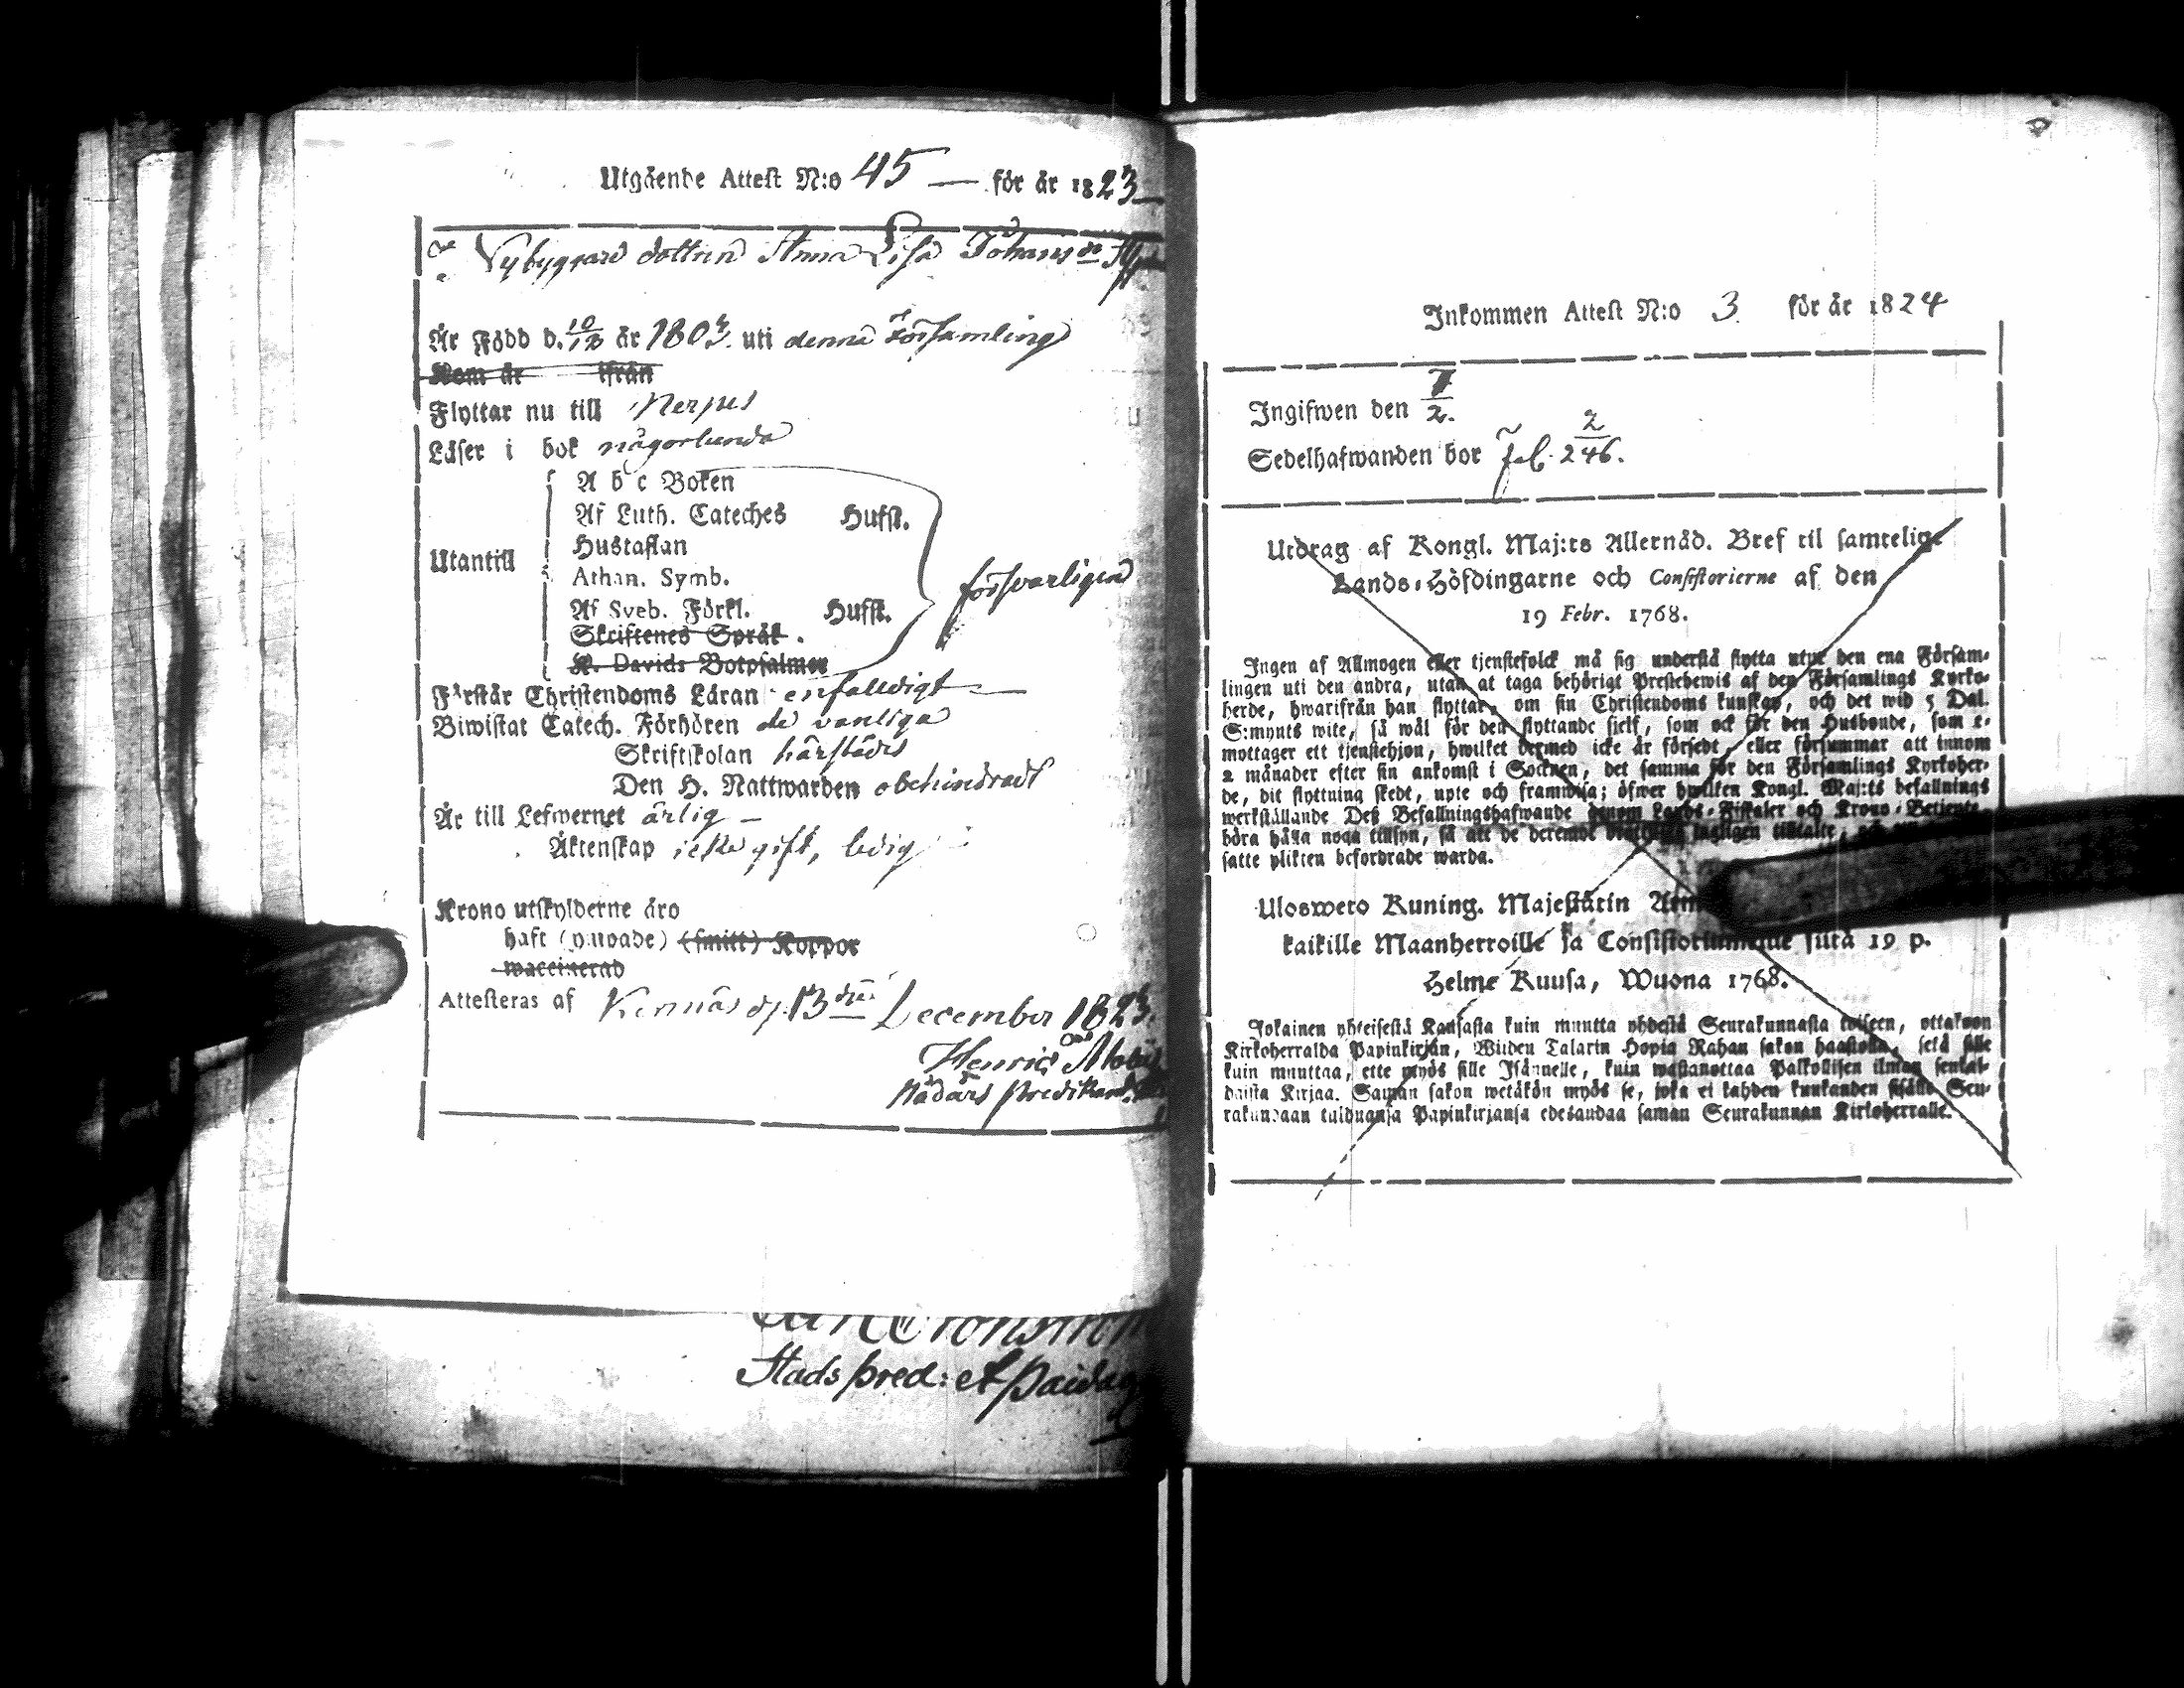 Utgående Attest N:o 45 — för år 1823
Nybyggare dottren Anna Lisa Johans dr
Är Född d. 10/12 år 1803. uti denna Församling
Kom år ifrån
Flyttar nu till Nerpes
Läser i bok någorlunda
A b c Boken
Af Luth. Cateches Husft.
Hustaflan
Utantill
Athan. Symb.
försvarligen
Af Sveb. Förkl. Husft.
Skriftenes Språk.
K. Davids Botpsalmer
Förstår Christendoms Läran enfaldigt
Biwistat Catech. Förhören de vanliga
Skriftskolan härstädes
Den H. Nattwarden obehindradt
Är till Lefwernet ärlig —
Äktenskap icke gift, ledig
Krono utskylderne äro
haft (ympade) (smitt) Koppor
waccinerad
Attesteras af 13 December 1823.
Henric
Nådårs Predikant.
Stads pred: et
Inkommen Attest N:o 3. för år 1824
Ingifwen den 1/2.
Sedelhafwanden bor fol. 246. 2
Utdrag af Kongl. Maj:ts Allernåd. Bref til samtelige
Lands-Höfdingarne och Consistorierne af den
19 Febr. 1768.
Ingen af Allmogen eller tjenstefolck må sig understå flytta utur den ena Försam-
lingen uti den andra, utan at taga behörigt Prestebewis af den Församlings Kyrko-
herde, hwarifrån han flyttar, om sin Christendoms kunskap, och det wid 5 Dal.
S:mynts wite, så wäl för den flyttande sielf, som ock för den Husbonde, som e-
mottager ett tjenstehjon, hwilket dermed icke är försedt, eller försummar att innom
2 månader efter sin ankomst i Socknen, det samma för den Församlings Kyrkoher-
de, dit flyttning skedt, upte och framwisa; öfwer hwilken Kongl. Maj:ts befallnings
werkställande Deß Befallningshafwande genom Lands-Fiskaler och Krono-Betjente
böra hålla noga tillsyn, så att de deremot lagligen tilltalte,
satte plikten befordrade warda.
Ulosweto Kuning. Majestätin
kaikille Maanherroille ja sutä 19 p.
Helme Kuusa, Wuona 1768.
Jokainen yhteisestä Kansasta kuin muutta yhdestä Seurakunnasta toiseen, ottakoon
Kirkoherralda Papinkirjan, Wiiden Talarin Hopia Rahan sakon haastolla, setä sille
kuin muuttaa, ette myös sille Isännelle, kuin wastanottaa Palkollisen ilman senkal-
daista Kirjaa. Saman sakon wetäkön myös se, joka ei kahden kuukanden sisälle Seu-
rakundaan tulduansa Papinkirjansa edesandaa saman Seurakunnan Kirkoherralle.